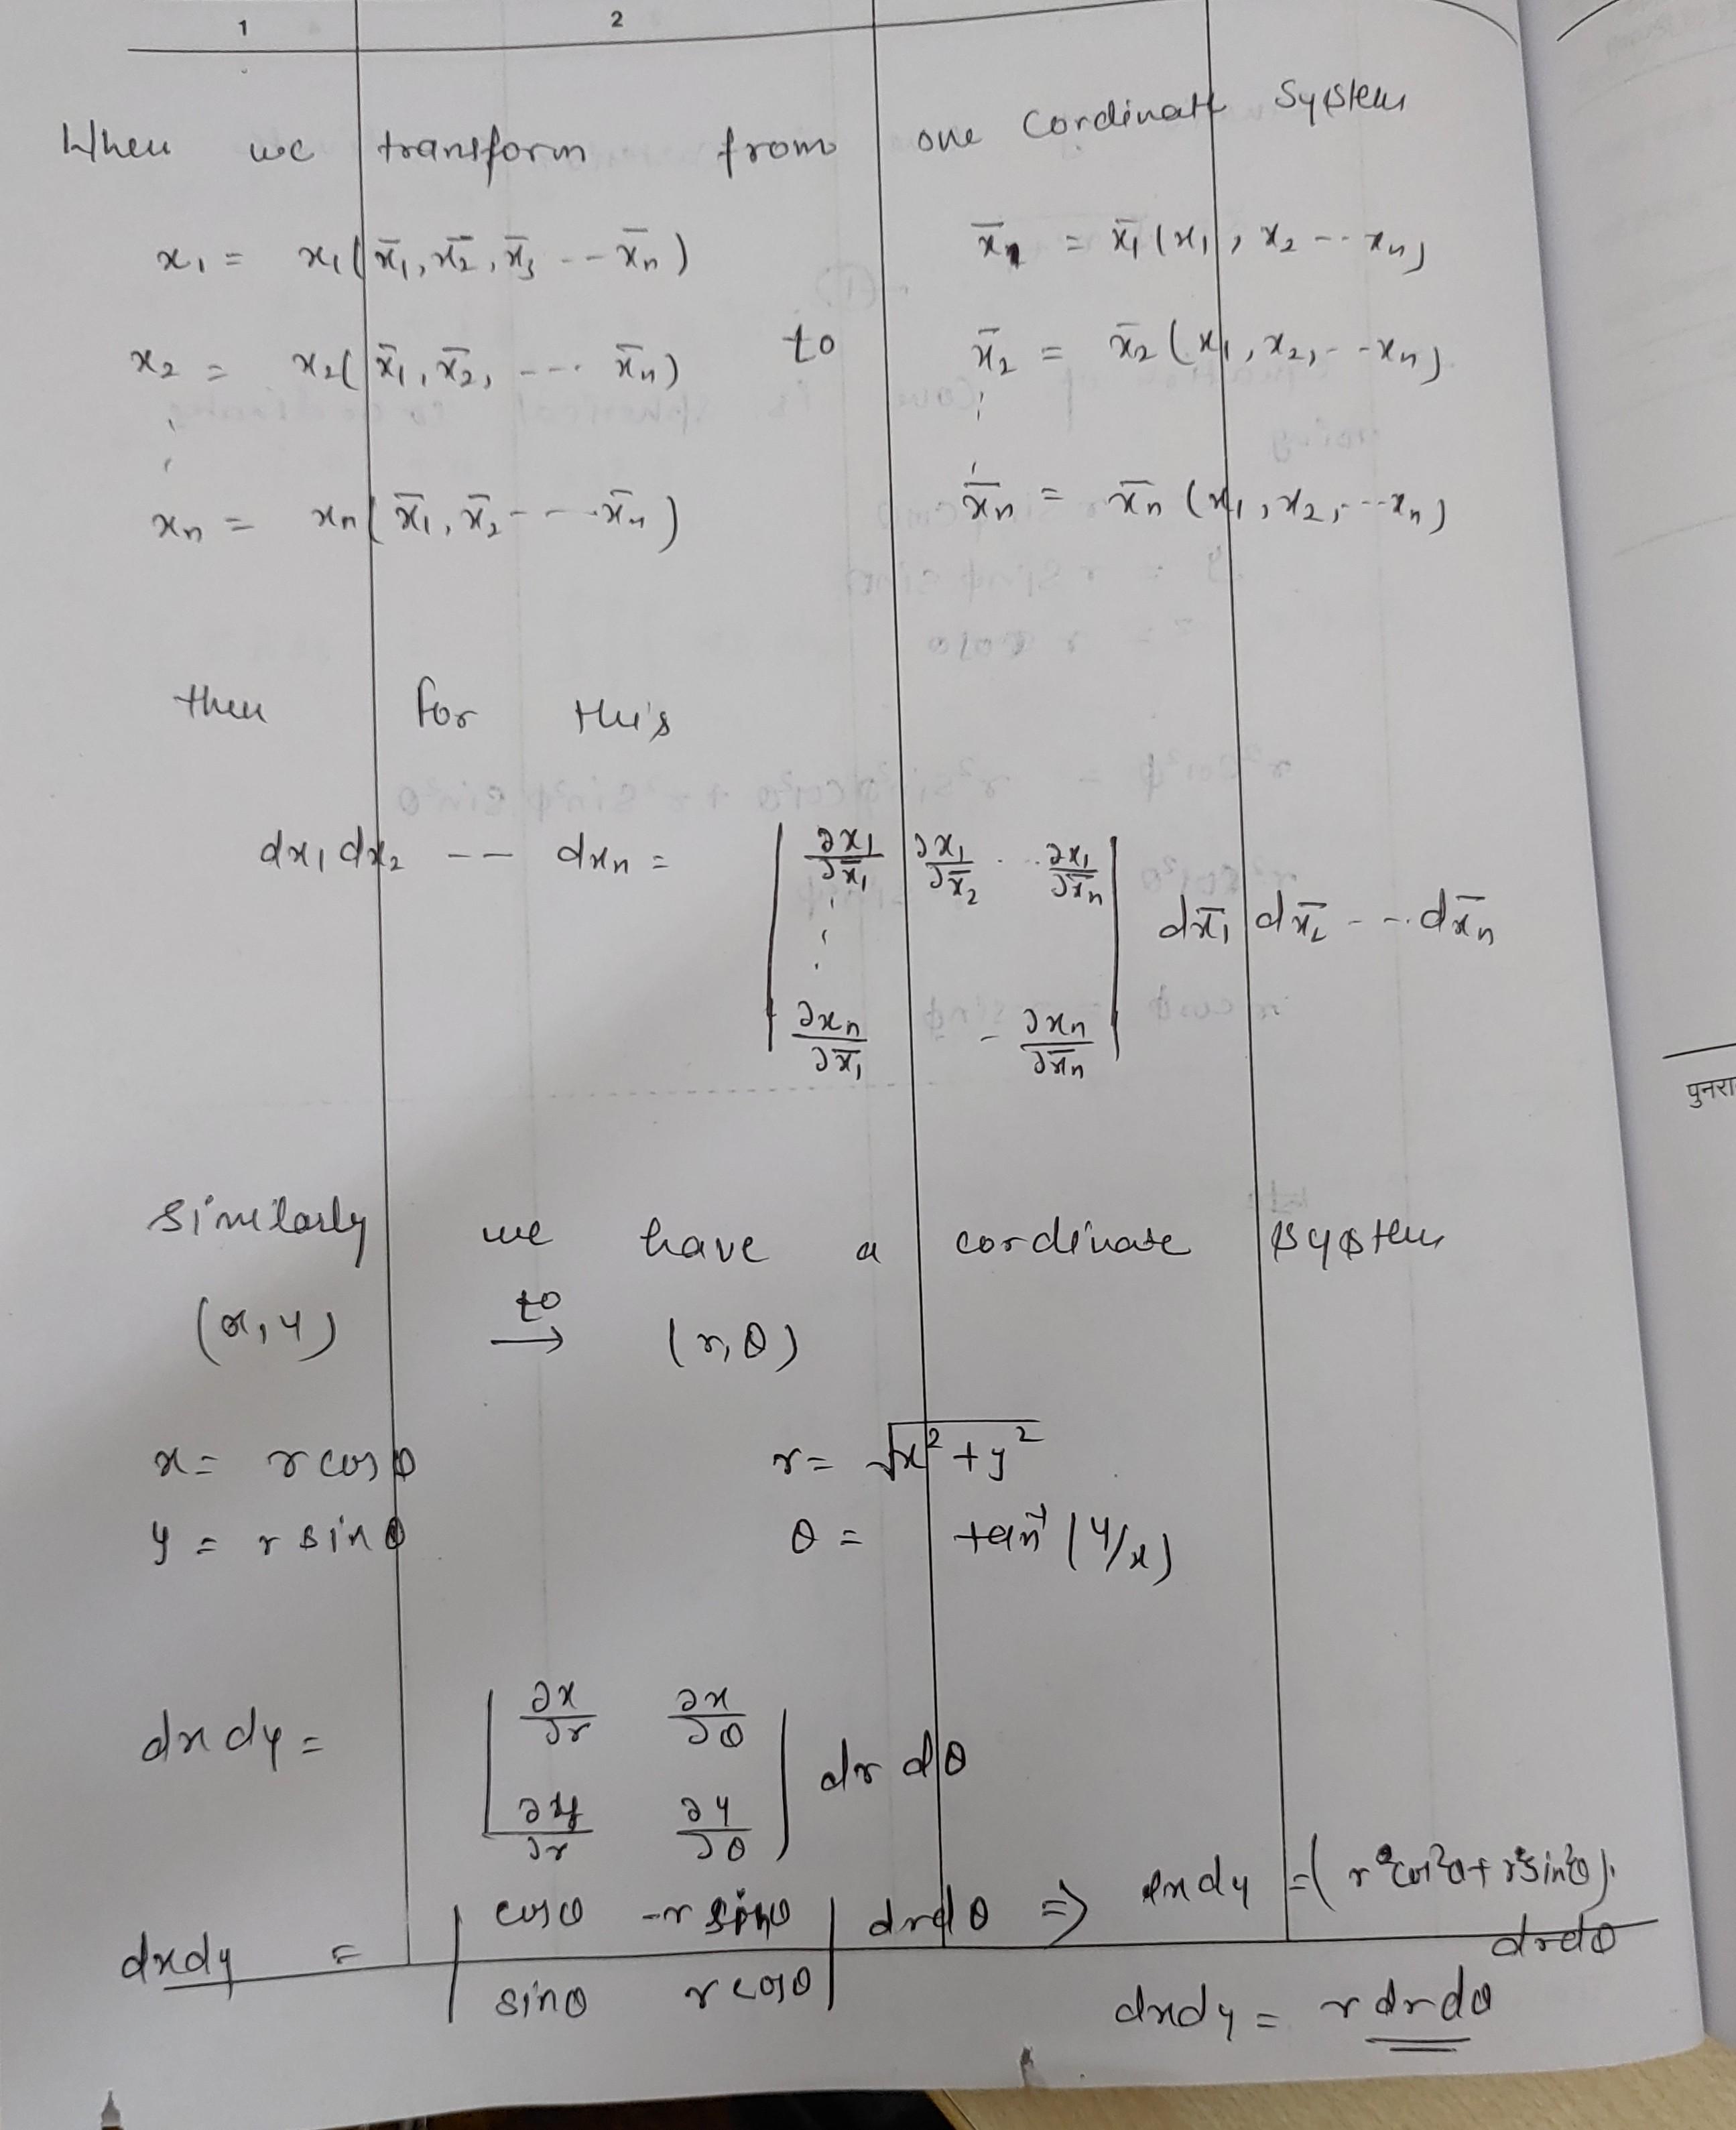 1 2
When we transform from one Cordinate System
x₁ = x₁(x̄₁, x̄₂, x̄₃ -- x̄ₙ) x̄₁ = x̄₁(x₁, x₂ -- xₙ)
x₂ = x₂(x̄₁, x̄₂, --- x̄ₙ) to x̄₂ = x̄₂(x₁, x₂, -- xₙ)
xₙ = xₙ(x̄₁, x̄₂ --- x̄ₙ) x̄ₙ = x̄ₙ(x₁, x₂, --- xₙ)
then for this
dx₁ dx₂ -- dxₙ = | ∂x₁/∂x̄₁ ∂x₁/∂x̄₂ ... ∂x₁/∂x̄ₙ |
dx̄₁ dx̄₂ --- dx̄ₙ
| ∂xₙ/∂x̄₁ - ∂xₙ/∂x̄ₙ |
पुनरा
Similarly we have a cordinate system
(x, y) to → (r, θ)
x = r cosθ r = √x² + y²
y = r sinθ θ = tan⁻¹(y/x)
dx dy = | ∂x/∂r ∂x/∂θ | dr dθ
| ∂y/∂r ∂y/∂θ |
dxdy = | cosθ -r sinθ | drdθ ⇒ dxdy = (r cos²θ + r sin²θ).
drdθ
| sinθ r cosθ |
dxdy = r drdθ